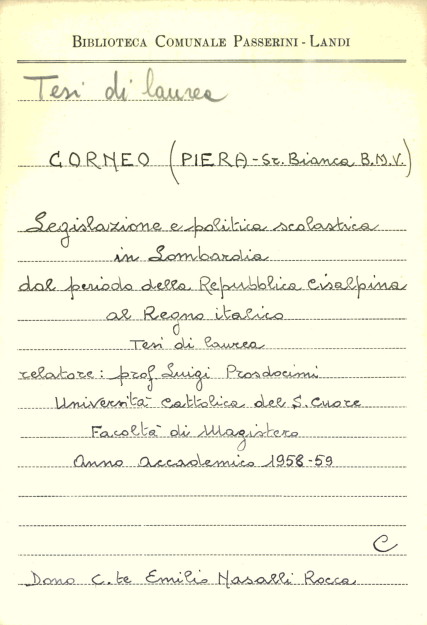 BIBLIOTECA COMUNALE PASSERINI - LANDI
Tesi di laurea
CORNEO (PIERA - Sr. Bianca B.M.V.)
Legislazione e politica scolastica
in Lombardia
dal periodo della Repubblica Cisalpina
al Regno italico
Tesi di laurea
relatore: prof. Luigi Prosdocimi
Università Cattolica del S. Cuore
Facoltà di Magistero
Anno accademico 1958-59
C
Dono C.te Emilio Nasalli Rocca